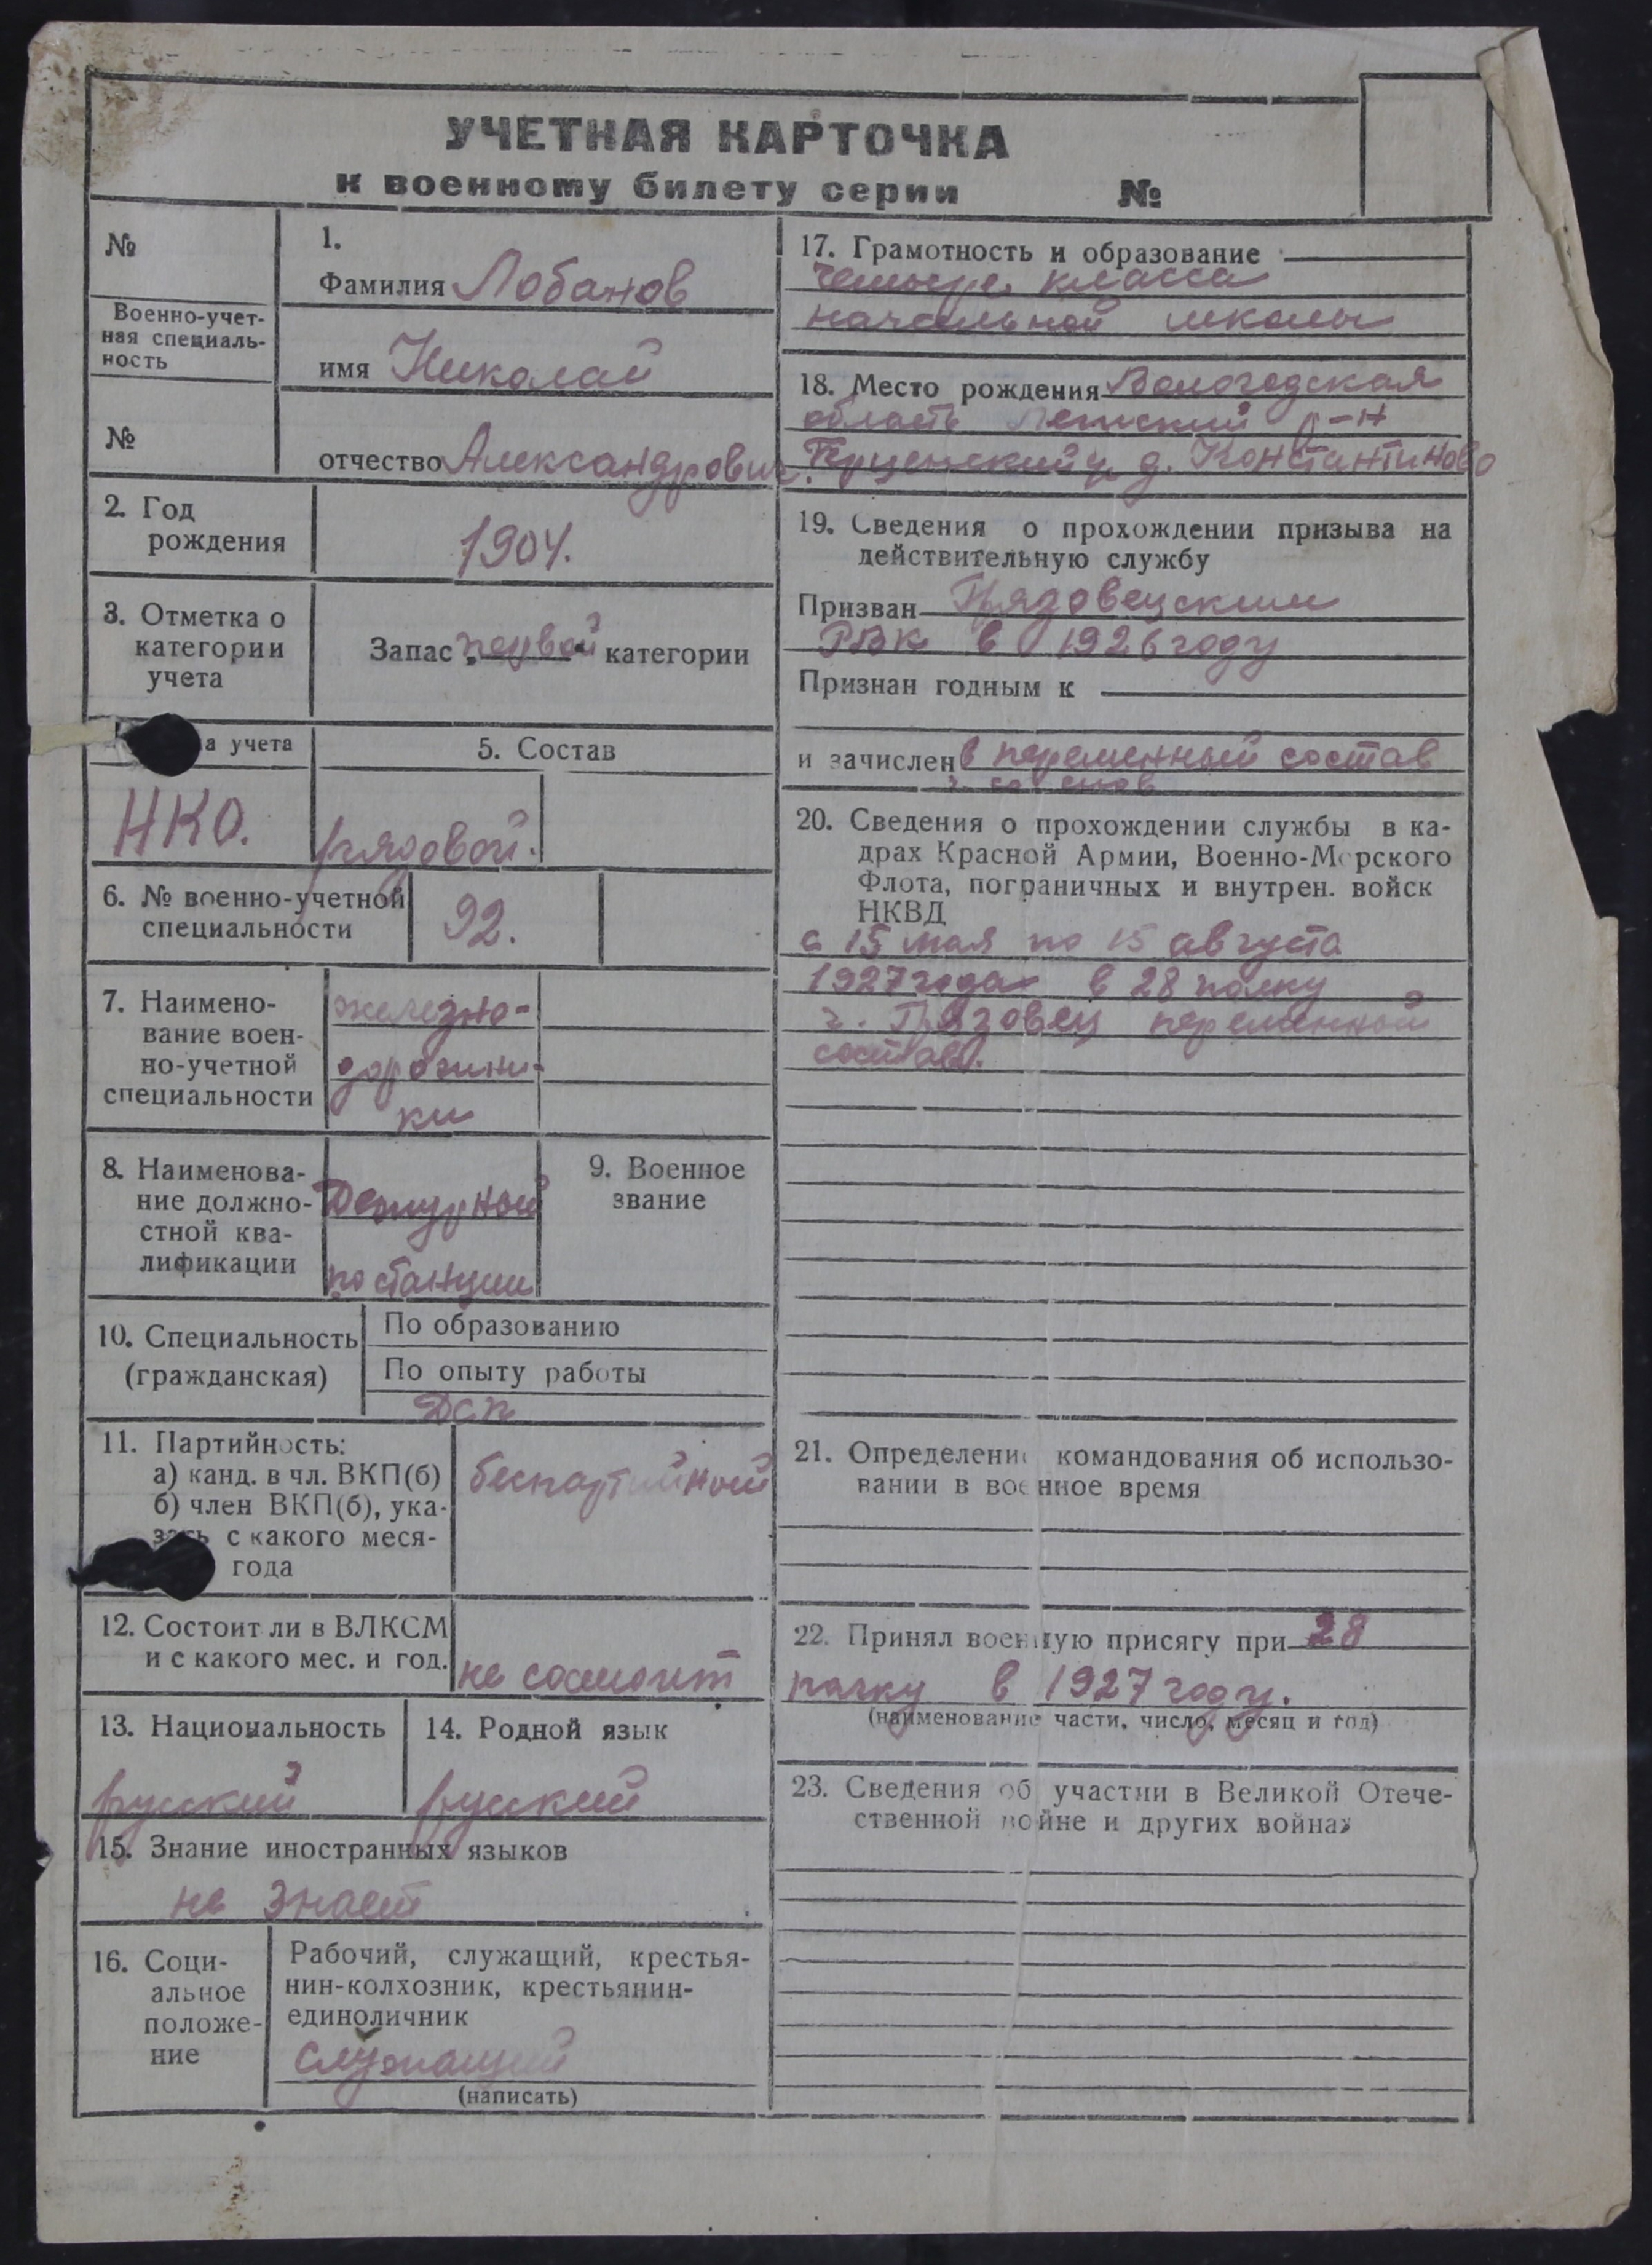 УЧЕТНАЯ КАРТОЧКА
к военному билету серии №
№
Военно-учет-
ная специаль-
ность
№
1.
Фамилия Лобанов
имя Николай
отчество Александрович
2. Год
рождения
1904.
3. Отметка о
категории
учета
Запас первой категории
а учета
НКО.
5. Состав
рядовой.
6. № военно-учетной
специальности
92.
7. Наимено-
вание воен-
но-учетной
специальности
железно-
дорожни-
ки
8. Наименова-
ние должно-
стной ква-
лификации
Дежурной
по станции
9. Военное
звание
10. Специальность
(гражданская)
По образованию
По опыту работы
ДСП
11. Партийность:
а) канд. в чл. ВКП(б)
б) член ВКП(б), ука-
зать с какого меся-
года
беспартийной
12. Состоит ли в ВЛКСМ
и с какого мес. и год.
не состоит
13. Национальность
русский
14. Родной язык
русский
15. Знание иностранных языков
не знает
16. Соци-
альное
положе-
ние
Рабочий, служащий, крестья-
нин-колхозник, крестьянин-
единоличник
служащий
(написать)
17. Грамотность и образование
четыре класса
начальной школы
18. Место рождения Вологодская
область р-н
д. Константиново
19. Сведения о прохождении призыва на
действительную службу
Призван Грязовецким
РВК в 1926 году
Признан годным к
и зачислен в переменный состав
20. Сведения о прохождении службы в ка-
драх Красной Армии, Военно-Морского
Флота, пограничных и внутрен. войск
НКВД
с 15 мая по 15 августа
1927 года в 28 полку
г. Грязовец переменной
состав.
21. Определение командования об использо-
вании в военное время
22. Принял военную присягу при 28
полку в 1927 году.
(наименование части, число, месяц и год)
23. Сведения об участии в Великой Отече-
ственной войне и других войнах